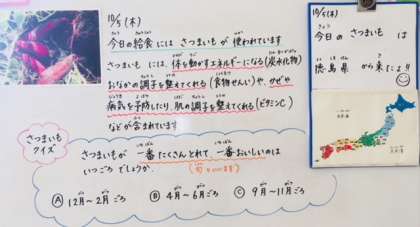 10/5 (木)
今日の給食には さつまいもが 使われています
さつまいもには、体を動かすエネルギーになる(炭水化物)
おなかの調子を整えてくれる(食物せんい)や、かぜや
病気を予防したり、肌の調子を整えてくれる(ビタミンC)
などが含まれています
さつまいも
クイズ
さつまいもが 一番たくさんとれて 一番おいしいのは
いつごろでしょうか。
(旬といいます)
Ⓐ 12月〜2月ごろ Ⓑ 4月〜6月ごろ Ⓒ 9月〜11月ごろ
10/5 (木)
今日の さつまいも は
徳島県 から来たよ!!